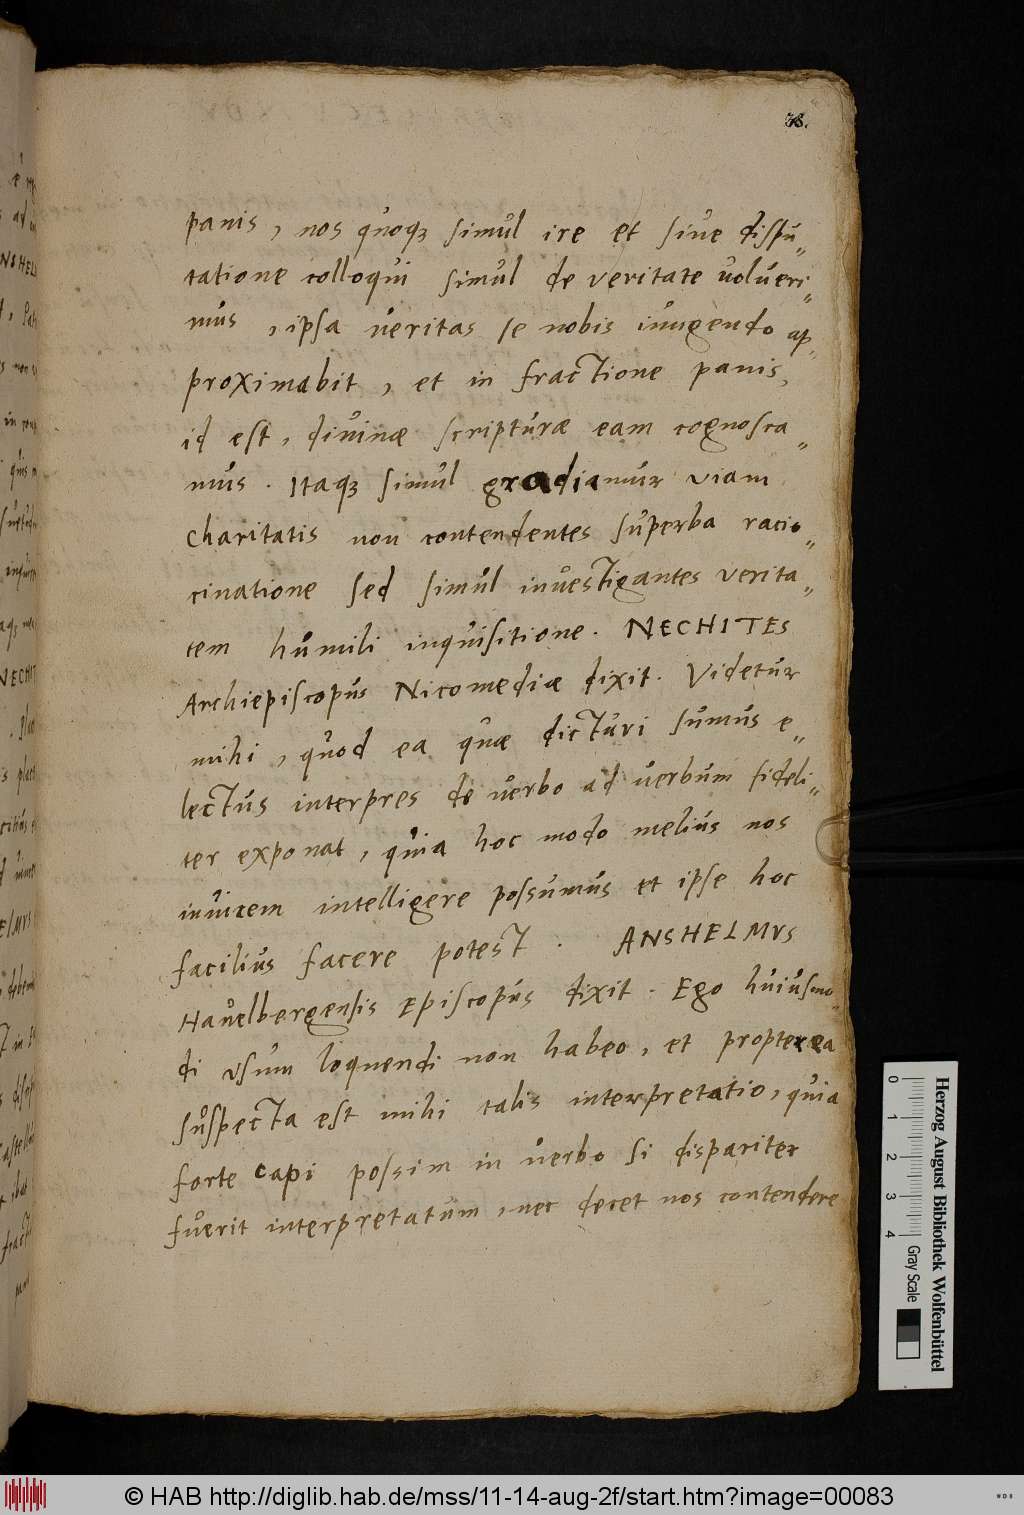 38.
panis, nos quoqꝫ simul ire et siue dispu„
tatione colloqui simul de veritate uolueri„
mus, ipsa ueritas se nobis iungendo ap„
proximabit, et in fractione panis,
id est, diuinæ scripturæ eam cognosca„
mus. Itaqꝫ simul gradiamur viam
charitatis non contendentes superba racio„
cinatione sed simul inuestigantes verita„
tem humili inquisitione. NECHITES
Archiepiscopus Nicomediæ dixit. Videtur
mihi, quod ea quæ dicturi sumus e„
lectus interpres de uerbo ad uerbum fideli„
ter exponat, quia hoc modo melius nos
inuicem intelligere possumus et ipse hoc
facilius facere potest. ANSHELMVS
Hauelbergensis Episcopus dixit. Ego huiusmo„
di vsum loquendi non habeo, et propterea
suspecta est mihi talis interpretatio, quia
forte capi possim in uerbo si dispariter
fuerit interpretatum, nec decet nos contendere
Herzog August Bibliothek Wolfenbüttel
0 1 2 3 4 Gray Scale
© HAB http://diglib.hab.de/mss/11-14-aug-2f/start.htm?image=00083